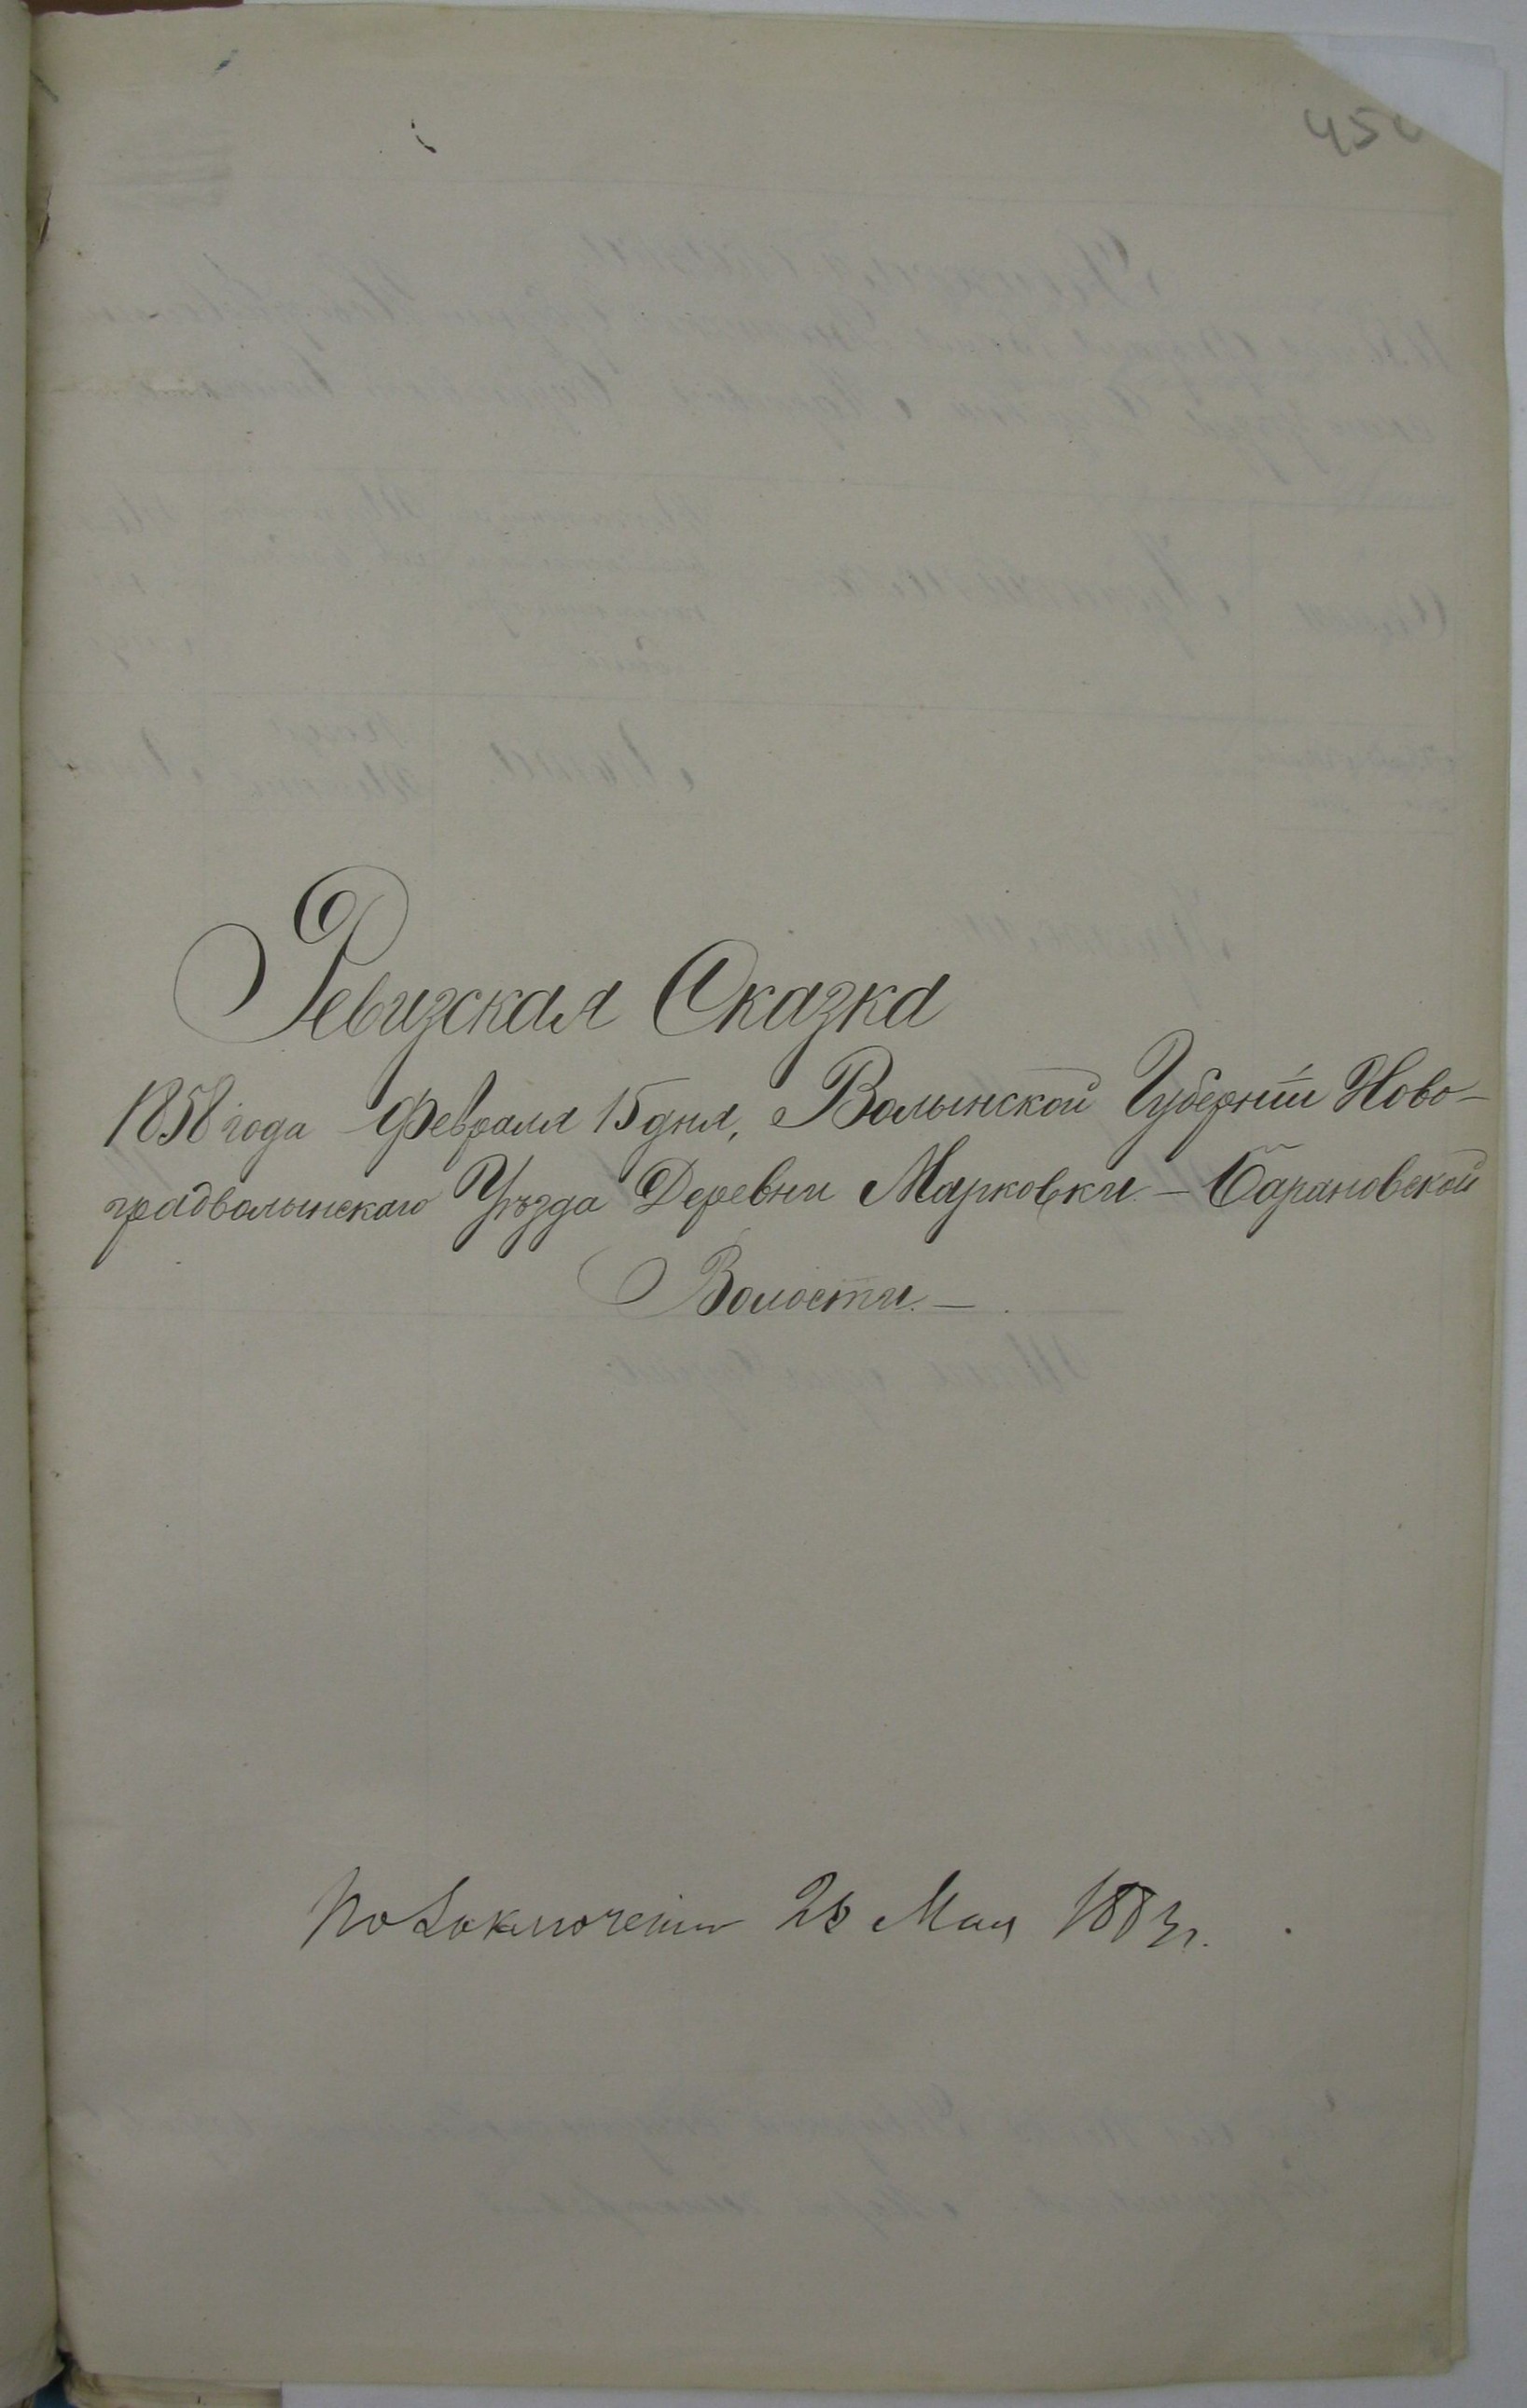 45
Ревизская Сказка
1858 года Февраля 15 дня, Волынской Губерніи Ново-
градволынскаго Уѣзда Деревни Марковки - Барановской
Волости. -
По Заключенію 23 Мая 1883 г.